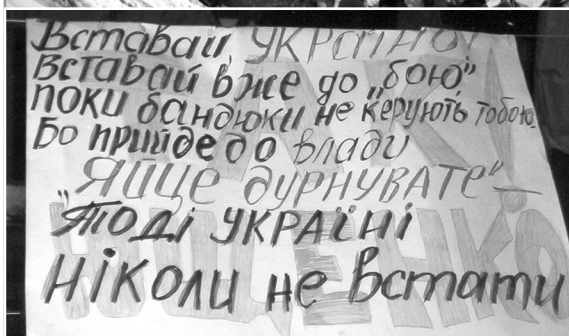 Вставай УКРАЇНО!
Вставай вже до „бою”
поки бандюки не керують тобою.
Бо прийде до влади
„ЯЙЦЕ ДУРНУВАТЕ”
Тоді УКРАЇНІ
НІКОЛИ не встати
ТАК!
ЮЩЕНКО